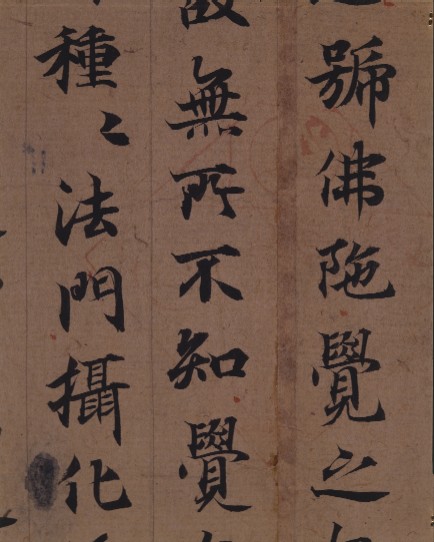 號佛陁覺之
故無所不知覺
種〻法門攝化